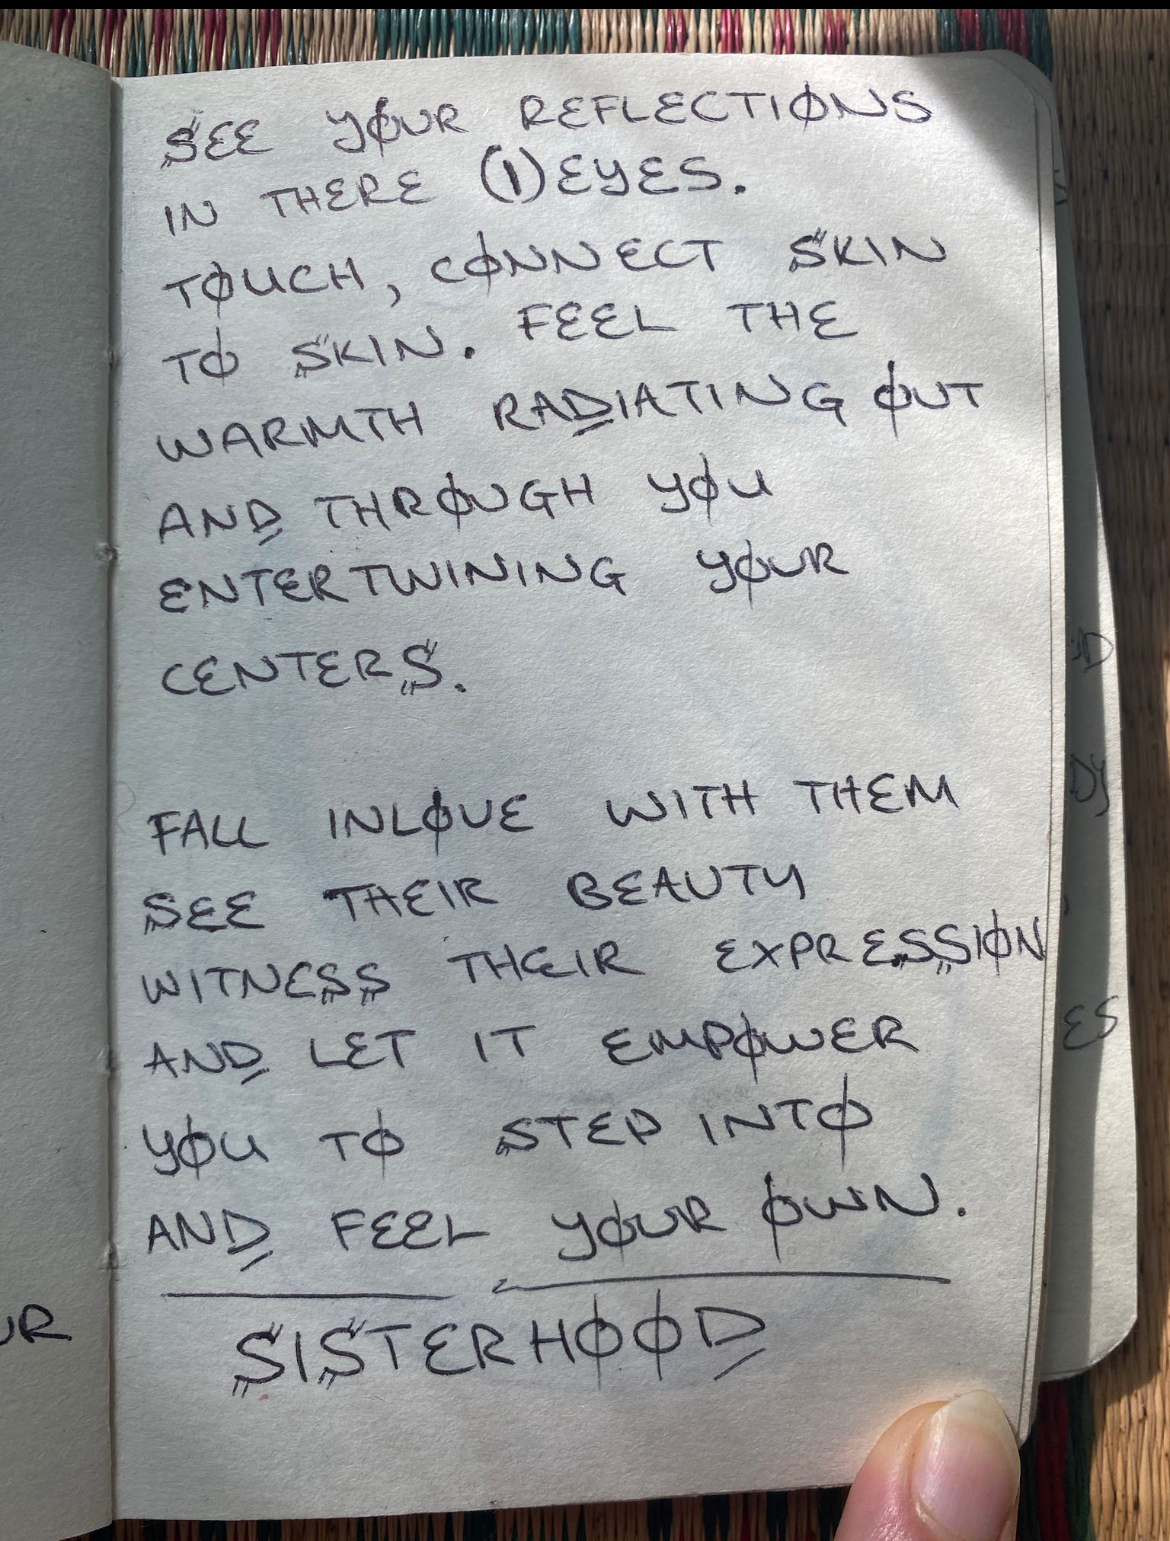 SEE YOUR REFLECTIONS
IN THERE (I) EYES.
TOUCH, CONNECT SKIN
TO SKIN. FEEL THE
WARMTH RADIATING OUT
AND THROUGH YOU
ENTERTWINING YOUR
CENTERS.
FALL INLOVE WITH THEM
SEE THEIR BEAUTY
WITNESS THEIR EXPRESSION
AND LET IT EMPOWER
YOU TO STEP INTO
AND FEEL YOUR OWN.
SISTERHOOD